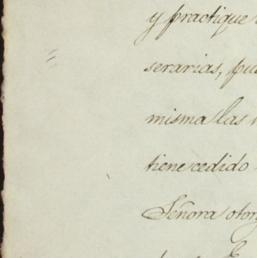 y practique
serarias, pu
misma las
tiene cedido
Señora otor